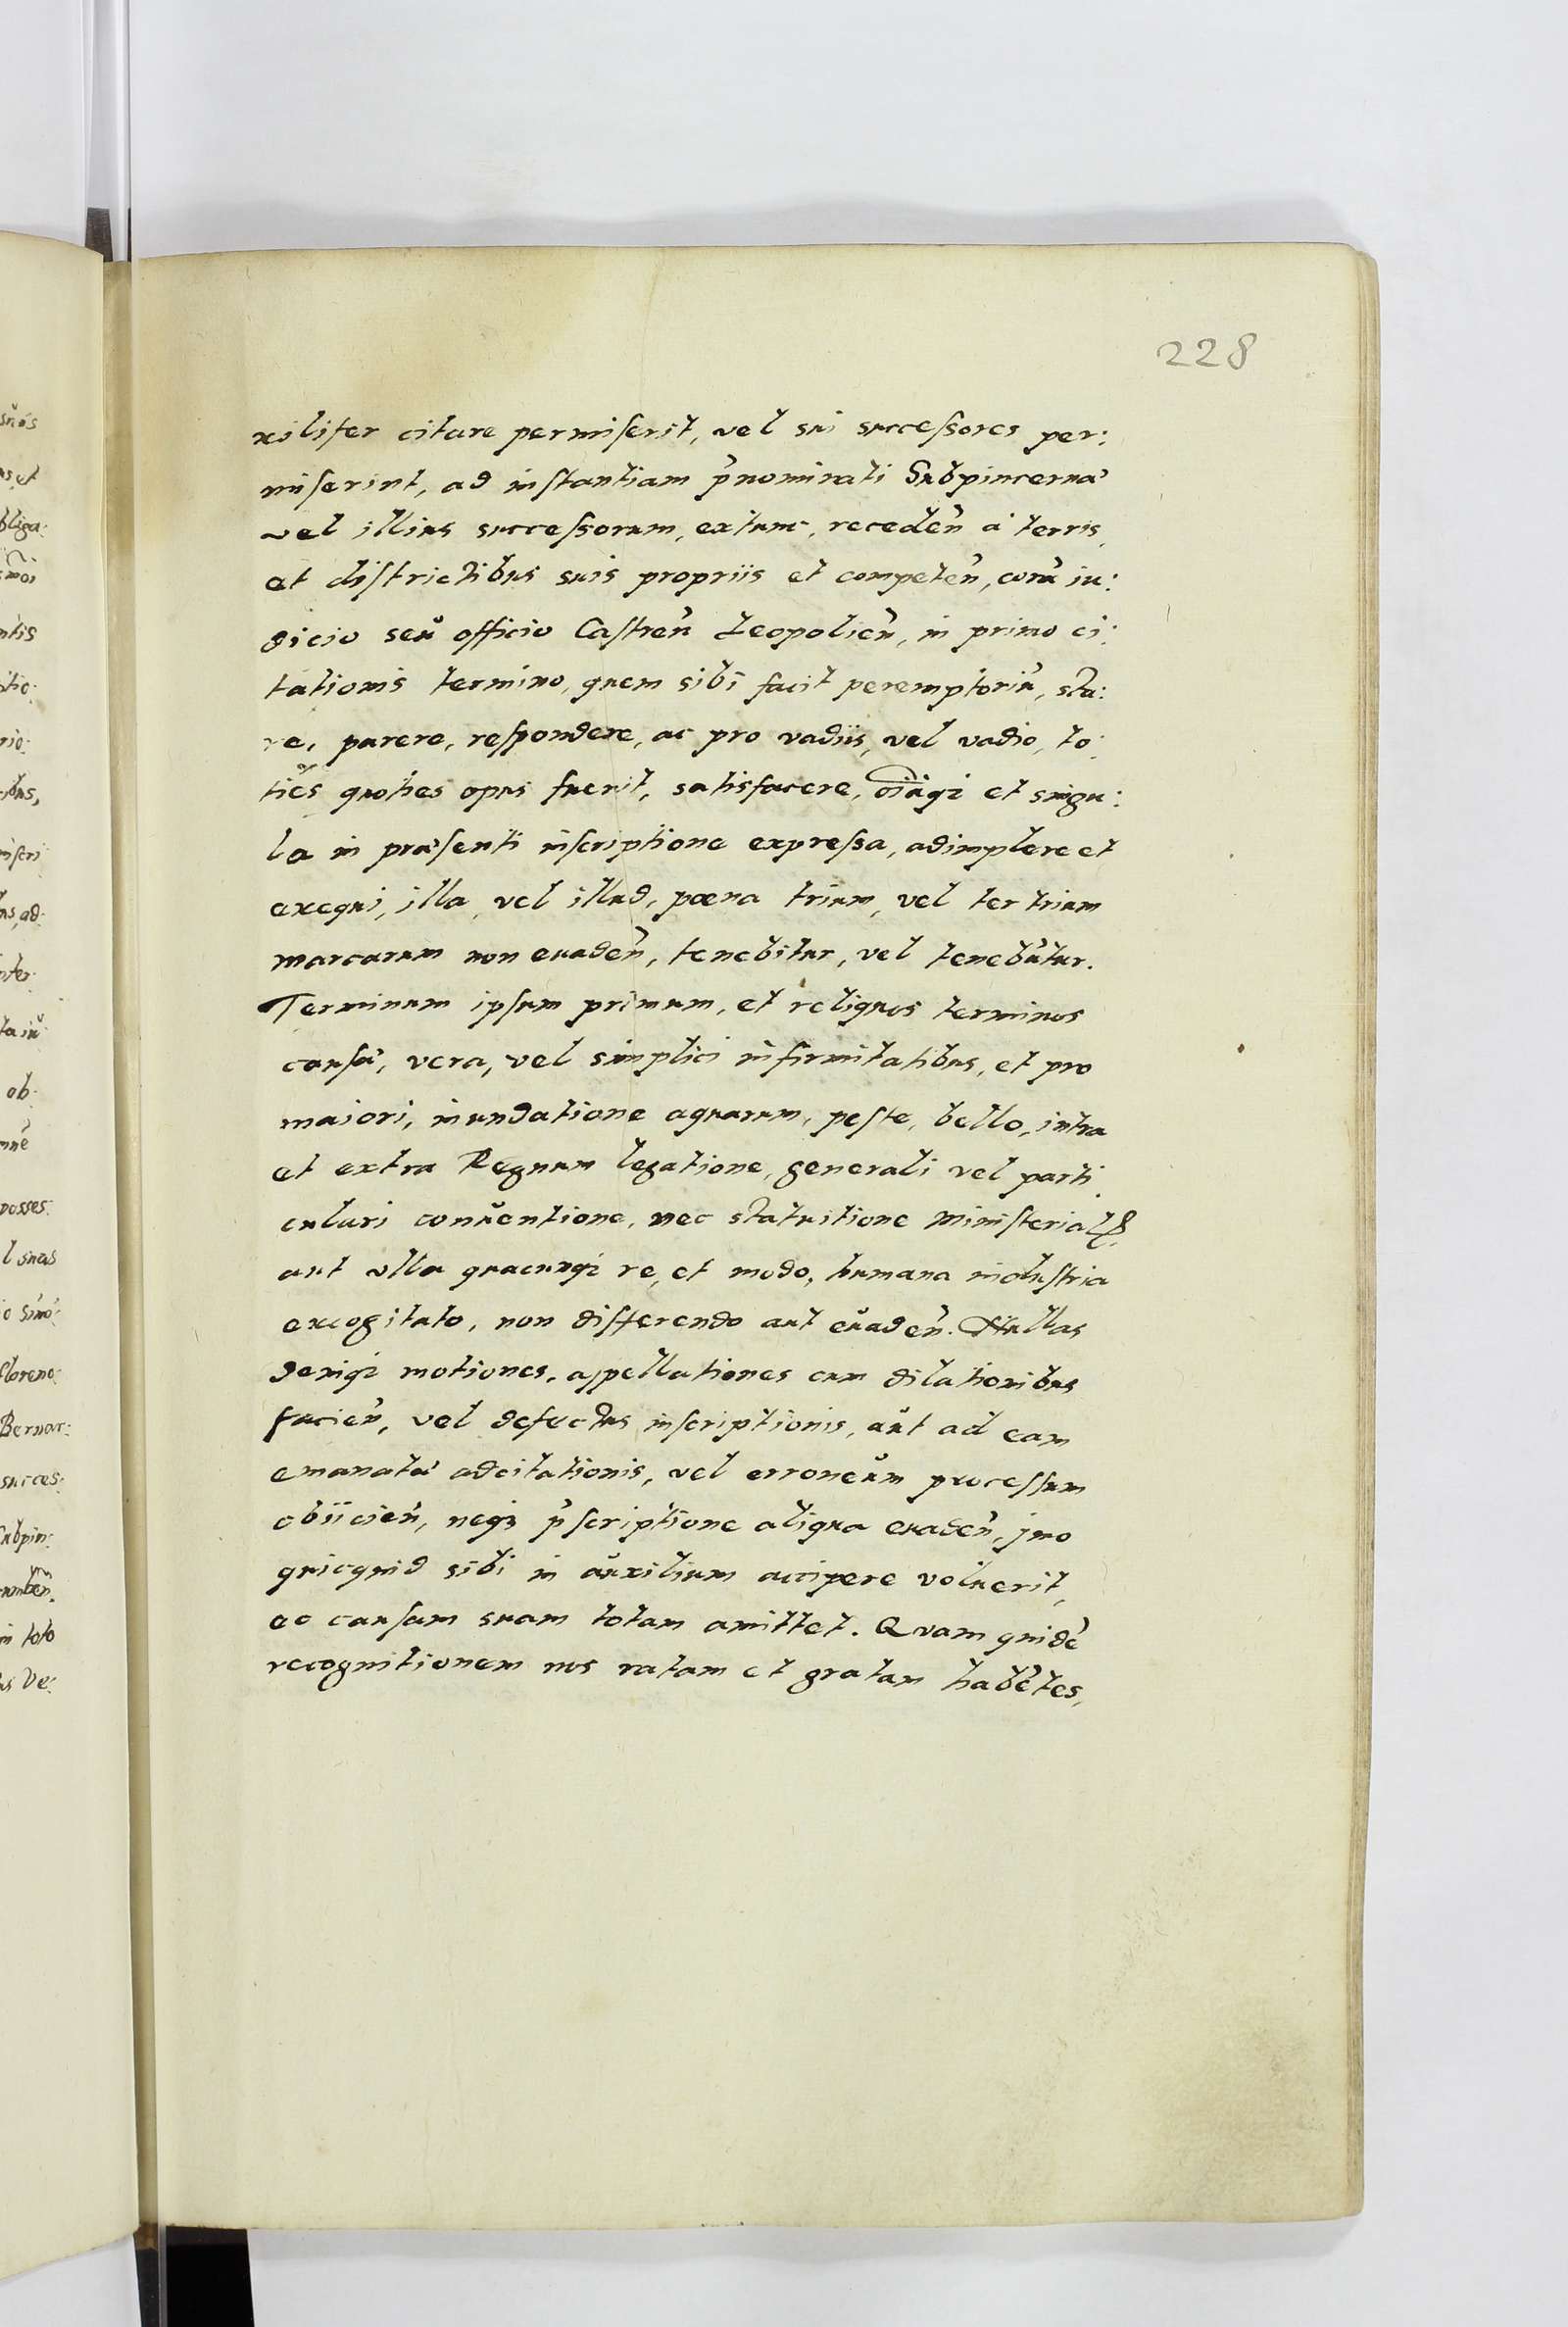 228
xilifer citare permiserit, vel sui successores per:
miserint, ad instantiam p̃nominati Subpincernæ
vel illius successorum, extunc, receden̄ à terris,
et districtibus suis propriis et competen̄, corā iu:
dicio seu officio Castren̄ Leopolien̄, in primo ci:
tationis termino, quem sibi facit peremptoriū, sta:
re, parere, respondere, ac pro vadiis, vel vadio, to:
ties quoties opus fuerit, satisfacere, oīaqꝫ et singu:
la in præsenti inscriptione expressa, adimplere et
exequi, illa, vel illud, pœna trium, vel ter trium
marcarum non euaden̄, tenebitur, vel tenebūtur.
Terminum ipsum primum, et reliquos terminos
causa, vera, vel simplici infirmitatibus, et pro
maiori, inundatione aquarum, peste, bello, intra
et extra Regnum legatione, generali vel parti:
culari conuentione, nec statuitione Ministerialꝭ.
aut vlla quacunqꝫ re, et modo, humana industria
excogitato, non differendo aut euaden̄. Nullas
deniqꝫ motiones, appellationes cum dilationibus
facien̄, vel defectus inscriptionis, aut ad eam
emanatæ adcitationis, vel erroneum processum
obiicien̄, neqꝫ p̃scriptione aliqua euaden̄, jmo
quicquid sibi in auxilium accipere voluerit,
eo causam suam totam amittet. Quam quidē
recognitionem nos ratam et gratam habētes,
sūos
ns, et
bliga:
smoi
ntis
itio:
rio:
ibus,
nscri
ns, ad:
nter:
ta iū
ob:
mnē
posses:
l suas
o Simō:
floreno:
Bernar:
succes:
Subpin:
cumben̄.
in toto
as Ve: